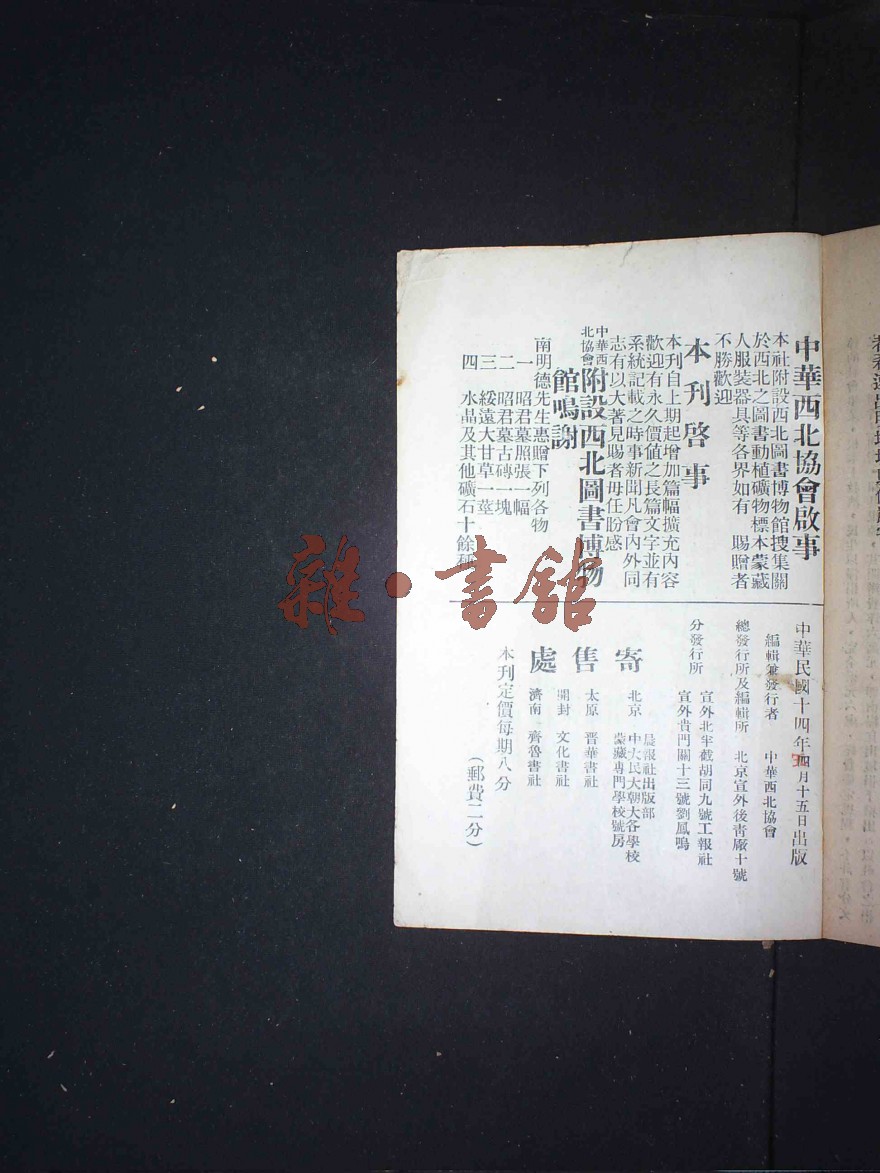 中華西北協會啟事
本社附設西北圖書博物館搜集關
於西北之圖書動植礦物標本蒙藏
人服裝器具等各界如有 賜贈者
不勝歡迎
本刊啓事
本刊自上期起增加篇幅擴充內容
歡迎有永久價値之長篇文字並有
系統記載之時事新聞凡會內外同
志有以大著見賜者毋任盼感
中華西北協會附設西北圖書博物
館鳴謝
南明德先生惠贈下列各物
一 昭君墓照張一幅
二 昭君墓古磚一塊
三 綏遠大甘草一莖
四 水晶及其他礦石十餘種
中華民國十四年四月十五日出版
五
編輯兼發行者 中華西北協會
總發行所及編輯所 北京宣外後靑厰十號
分發行所
宣外北半截胡同九號工報社
宣外貴門關十三號劉鳳鳴
寄售處
北京
晨報社出版部
中大民大朝大各學校
蒙藏專門學校號房
太原 晋華書社
開封 文化書社
濟南 齊魯書社
本刊定價每期八分
(郵費二分)
雜·書館